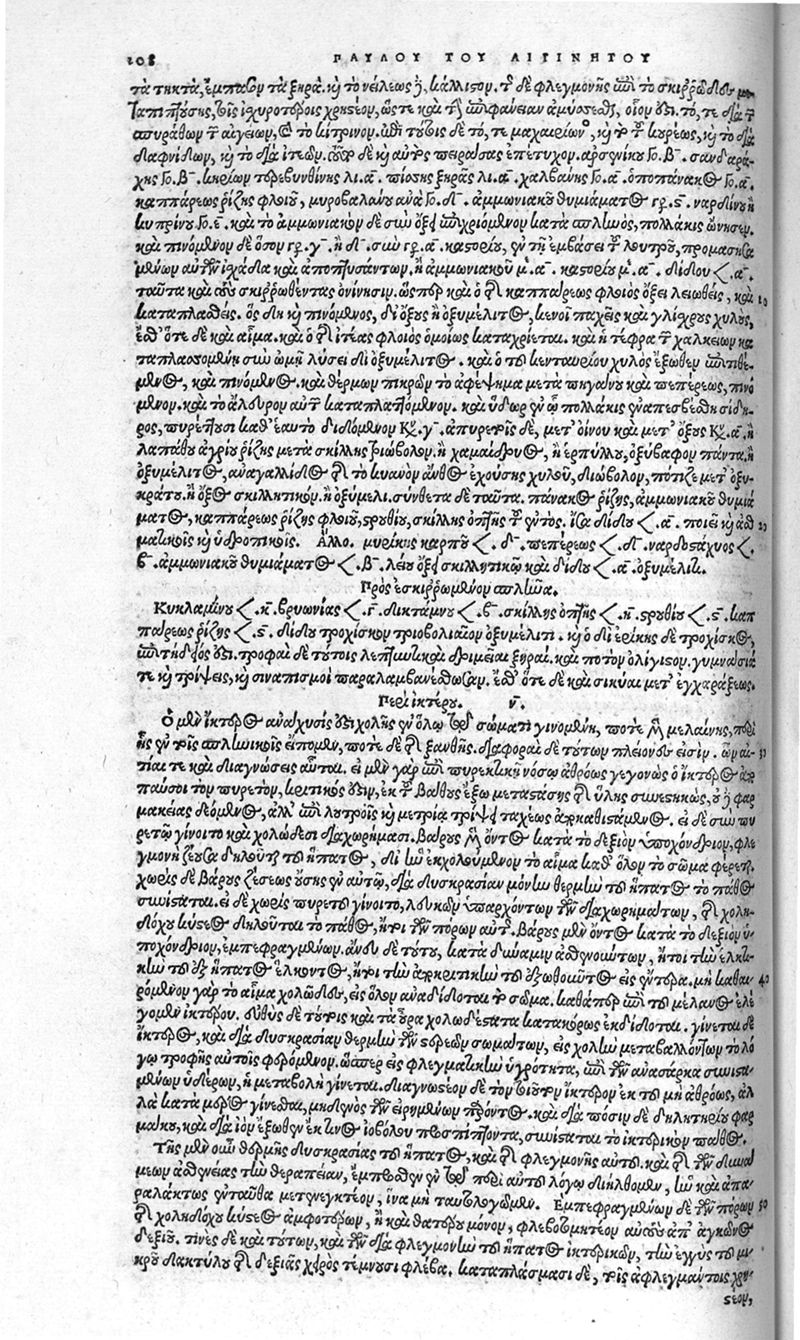 108 ΠΑΥΛΟΥ ΤΟΥ ΑΙΓΙΝΗΤΟΥ
τὰ τηκτὰ, ἔμπασσον τὰ ξηρά. καὶ τὸ νείλεως ἢ, κάλλιστον. τῆς δὲ φλεγμονῆς ἐπὶ τὸ σκιῤῥῶδες με-
ταπιπτούσης, τοῖς ἰσχυροτέροις χρηστέον, ὥστε καὶ τὴν ἐπιφάνειαν ἀμύσσεσθαι, οἷον ἐστι τό, τε διὰ τῶν
σπυράθων τῶν αἰγείων, καὶ τὸ κίτρινον. ἐπὶ τούτοις δὲ τό, τε μαχαιρίωνος, καὶ τὸ τοῦ κυρέως, καὶ τὸ διὰ
δαφνίδων, καὶ τὸ διὰ ἰτεῶν. οὗ δὲ καὶ αὐτὸς πειράσας ἐπέτυχον. ἀρσενίκου Γο. β. σανδαρά-
χης Γο. β. κηρίων τερεβινθίνης λι. α. πίσσης ξηρᾶς λι. α. χαλβάνης Γο. α. ὀποπάνακος Γο. α.
καππάρεως ῥίζης φλοιοῦ, μυροβαλάνου ἀνὰ Γο. δ. ἀμμωνιακοῦ θυμιάματος γρ. ς. ναρδίνου ἢ
κυπρίνου Γο. ε. καὶ τὸ ἀμμωνιακὸν δὲ σὺν ὄξει ἐπιχριόμενον κατὰ σπληνὸς, πολλάκις ὤνησεν.
καὶ πινόμενον δὲ ὅσον γρ. γ. ἢ δ. σὺν γρ. α. καστορίου, ἐν τῇ ἐμβάσει τοῦ λουτροῦ, προμασησα
μένων αὐτῶν ἰσχάδα καὶ ἀποπτυσάντων. ἢ ἀμμωνιακοῦ μ. α. καστορίου μ. α. δίδου <. α.
ταῦτα καὶ τοὺς σκιῤῥωθέντας ὀνίνησιν. ὥσπερ καὶ ὁ τῆς καππάρεως φλοιὸς ὄξει λειωθεὶς, καὶ 10
καταπλασθείς. ὃς δὴ καὶ πινόμενος, δι᾽ ὄξους ἢ ὀξυμέλιτος, κενοῖ παχεῖς καὶ γλίσχρους χυλοὺς,
ἔσθ᾽ ὅτε δὲ καὶ αἷμα. καὶ ὁ τῆς ἰτέας φλοιὸς ὁμοίως καταχρίεται. καὶ ἡ τέφρα τῶν χαλκείων κα
ταπλασσομένη σὺν ὠμῇ λύσει δι᾽ ὀξυμέλιτος. καὶ ὁ τοῦ κενταυρίου χυλὸς ἔξωθεν ἐπιτιθέ-
μενος, καὶ πινόμενος. καὶ θέρμων πικρῶν τὸ ἀφέψημα μετὰ πηγάνου καὶ πεπέρεως, πινό
μενον. καὶ τὸ ἄλευρον αὐτῶν καταπλαττόμενον. καὶ ὕδωρ ἐν ᾧ πολλάκις ἐναπεσβέσθη σίδη-
ρος, πυρέττουσι καθ᾽ ἑαυτὸ διδόμενον Κυ. γ. ἀπυρέτοις δὲ, μετ᾽ οἴνου καὶ μετ᾽ ὄξους Κυ. α. ἢ
λαπάθου ἀγρίου ῥίζης μετὰ σκίλλης τριώβολον. ἢ χαμαίδρυος, ἢ ἑρπύλλου, ὀξύβαφον πάντα. ἢ
ὀξυμέλιτος, ἀναγαλλίδος τῆς τὸ κυανὸν ἄνθος ἐχούσης χυλοῦ, διώβολον, πότιζε μετ᾽ ὀξυ-
κράτου. ἢ ὄξος σκιλλητικόν. ἢ ὀξύμελι. σύνθετα δὲ ταῦτα. πάνακος ῥίζης, ἀμμωνιακοῦ θυμιά
ματος, καππάρεως ῥίζης φλοιοῦ, στρουθίου, σκίλλης ὀπτῆς τὸ ἐντός. ἴσα δίδου <. α. ποιεῖ καὶ ἀσθ 20
ματικοῖς καὶ ὑδρωπικοῖς. Ἄλλο. μυρίκης καρποῦ <. δ. πεπέρεως <. δ. ναρδοστάχυος <.
β. ἀμμωνιακοῦ θυμιάματος <. β. λείου ὄξει σκιλλητικῷ καὶ δίδου <. α. ὀξυμέλιτι.
Πρὸς ἐσκιῤῥωμένον σπλῆνα.
Κυκλαμίνου <. κ. βρυωνίας <. ϛ. δικτάμνου <. β. σκίλλης ὀπτῆς <. κ. στρουθίου <. ϛ. καπ
πάρεως ῥίζης <. ϛ. δίδου τροχίσκον τριοβολιαῖον ὀξυμέλιτι. καὶ ὁ δι᾽ ἐρίκης δὲ τροχίσκος,
ἐπιτήδειός ἐστι. τροφαὶ δὲ τούτοις λεπτυντικαὶ δριμεῖαι ξηραί. καὶ ποτὸν ὀλίγιστον. γυμνασιά
τε καὶ τρίψεις, καὶ σιναπισμοὶ παραλαμβανέσθωσαν. ἔσθ᾽ ὅτε δὲ καὶ σικύαι μετ᾽ ἐγχαράξεως.
Περὶ ἰκτέρου. ν.
Ὁ μὲν ἴκτερος ἀνάχυσίς ἐστι χολῆς ἐν ὅλῳ τῷ σώματι γινομένη, ποτὲ μὲν μελαίνης, περὶ
ἧς ἐν τοῖς σπληνικοῖς εἴπομεν, ποτὲ δὲ τῆς ξανθῆς. διαφοραὶ δὲ τούτων πλείονές εἰσιν. ὧν αἰ- 30
τίαι τε καὶ διαγνώσεις αὗται. εἰ μὲν γὰρ ἐπὶ πυρεκτικῇ νόσῳ ἀθρόως γεγονὼς ὁ ἴκτερος ἀπο
παύσοι τὸν πυρετὸν, κριτικός ἐστιν, ἐκ τοῦ βάθους ἔξω μεταστάσης τῆς ὕλης συνεστηκὼς, οὐ φαρ
μακείας δεόμενος, ἀλλ᾽ ἐπὶ λουτροῖς καὶ μετρίᾳ τρίψει ταχέως ἀποκαθιστάμενος. εἰ δὲ σὺν πυ
ρετῷ γίνοιτο καὶ χολώδεσι διαχωρήμασι. βάρους μὲν ὄντος κατὰ τὸ δεξιὸν ὑποχόνδριον, φλε
γμονὴ ζέουσα δηλοῦται τοῦ ἥπατος, δι᾽ ἣν ἐκχολούμενον τὸ αἷμα καθ᾽ ὅλον τὸ σῶμα φέρεται.
χωρὶς δὲ βάρους ζέσεως οὔσης ἐν αὐτῷ, διὰ δυσκρασίαν μόνην θερμὴν τοῦ ἥπατος τὸ πάθος
συνίσταται. εἰ δὲ χωρὶς πυρετοῦ γίνοιτο, λευκῶν ὑπαρχόντων τῶν διαχωρημάτων, τῆς χολη-
δόχου κύστεως δηλοῦται τὸ πάθος, ἤτοι τῶν πόρων αὐτῆς. βάρους μὲν ὄντος κατὰ τὸ δεξιὸν ὑ-
ποχόνδριον, ἐμπεφραγμένων. ἄνευ δὲ τούτου, κατὰ δύναμιν ἀσθενούντων, ἤτοι τὴν ἑλκτι-
κὴν τοῦ ἐξ ἥπατος ἕλκοντος, ἤτοι τὴν ἀποκριτικὴν τοῦ ἐξωθοῦντος εἰς ἔντερα. μὴ καθαι- 40
ρόμενον γὰρ τὸ αἷμα χολῶδες, εἰς ὅλον ἀναδίδοται τὸ σῶμα. καθάπερ ἐπὶ τοῦ μέλανος ἐλέ
γομεν ἰκτέρου. εὐθὺς δὲ τούτοις καὶ τὰ οὖρα χολωδέστατα κατακόρως ἐκδίδοται. γίνεται δὲ
ἴκτερος, καὶ διὰ δυσκρασίαν θερμὴν τῶν στερεῶν σωμάτων, εἰς χολὴν μεταβαλλόντων τὸ λό
γῳ τροφῆς αὐτοῖς φερόμενον. ὥσπερ εἰς φλεγματικὴν ὑγρότητα, ἐπὶ τῶν ἀνασάρκα συνιστα-
μένων ὑδέρων, ἡ μεταβολὴ γίνεται. διαγνωστέον δὲ τὸν τοιοῦτον ἴκτερον ἐκ τοῦ μὴ ἀθρόως, ἀλ
λὰ κατὰ μέρος γίνεσθαι, μηδενὸς τῶν εἰρημένων προόντος. καὶ διὰ πόσιν δὲ δηλητηρίου φαρ
μάκου, καὶ διὰ ἰὸν ἔξωθεν ἔκ τινος ἰοβόλου προσπίπτοντα, συνίσταται τὸ ἰκτερικὸν πάθος.
Τῆς μὲν οὖν θερμῆς δυσκρασίας τοῦ ἥπατος, καὶ τῆς φλεγμονῆς αὐτοῦ. καὶ τῆς τῶν δυνά
μεων ἀσθενείας τὴν θεραπείαν, ἔμπροσθεν ἐν τῷ περὶ αὐτοῦ λόγῳ διήλθομεν, ἣν καὶ ἀπα-
ραλάκτως ἐνταῦθα μετενεγκτέον, ἵνα μὴ ταυτολογῶμεν. Ἐμπεφραγμένων δὲ τῶν πόρων 50
τῆς χοληδόχου κύστεως ἀμφοτέρων, ἢ καὶ θατέρου μόνου, φλεβοτομητέον αὐτοὺς ἀπ᾽ ἀγκῶνος
δεξιοῦ. τινὲς δὲ καὶ τούτων, καὶ τῶν διὰ φλεγμονὴν τοῦ ἥπατος ἰκτερικῶν, τὴν ἐγγὺς τοῦ μι-
κροῦ δακτύλου τῆς δεξιᾶς χειρὸς τέμνουσι φλέβα. καταπλάσμασι δὲ, τοῖς ἀφλεγμάντοις χρη-
στέον,